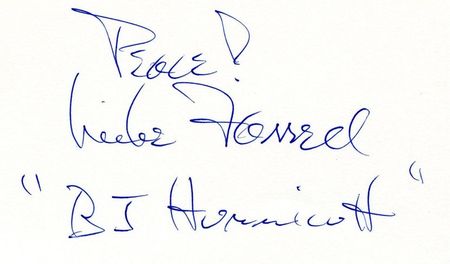 Peace!
Mike Farrell
"BJ Hunnicutt"